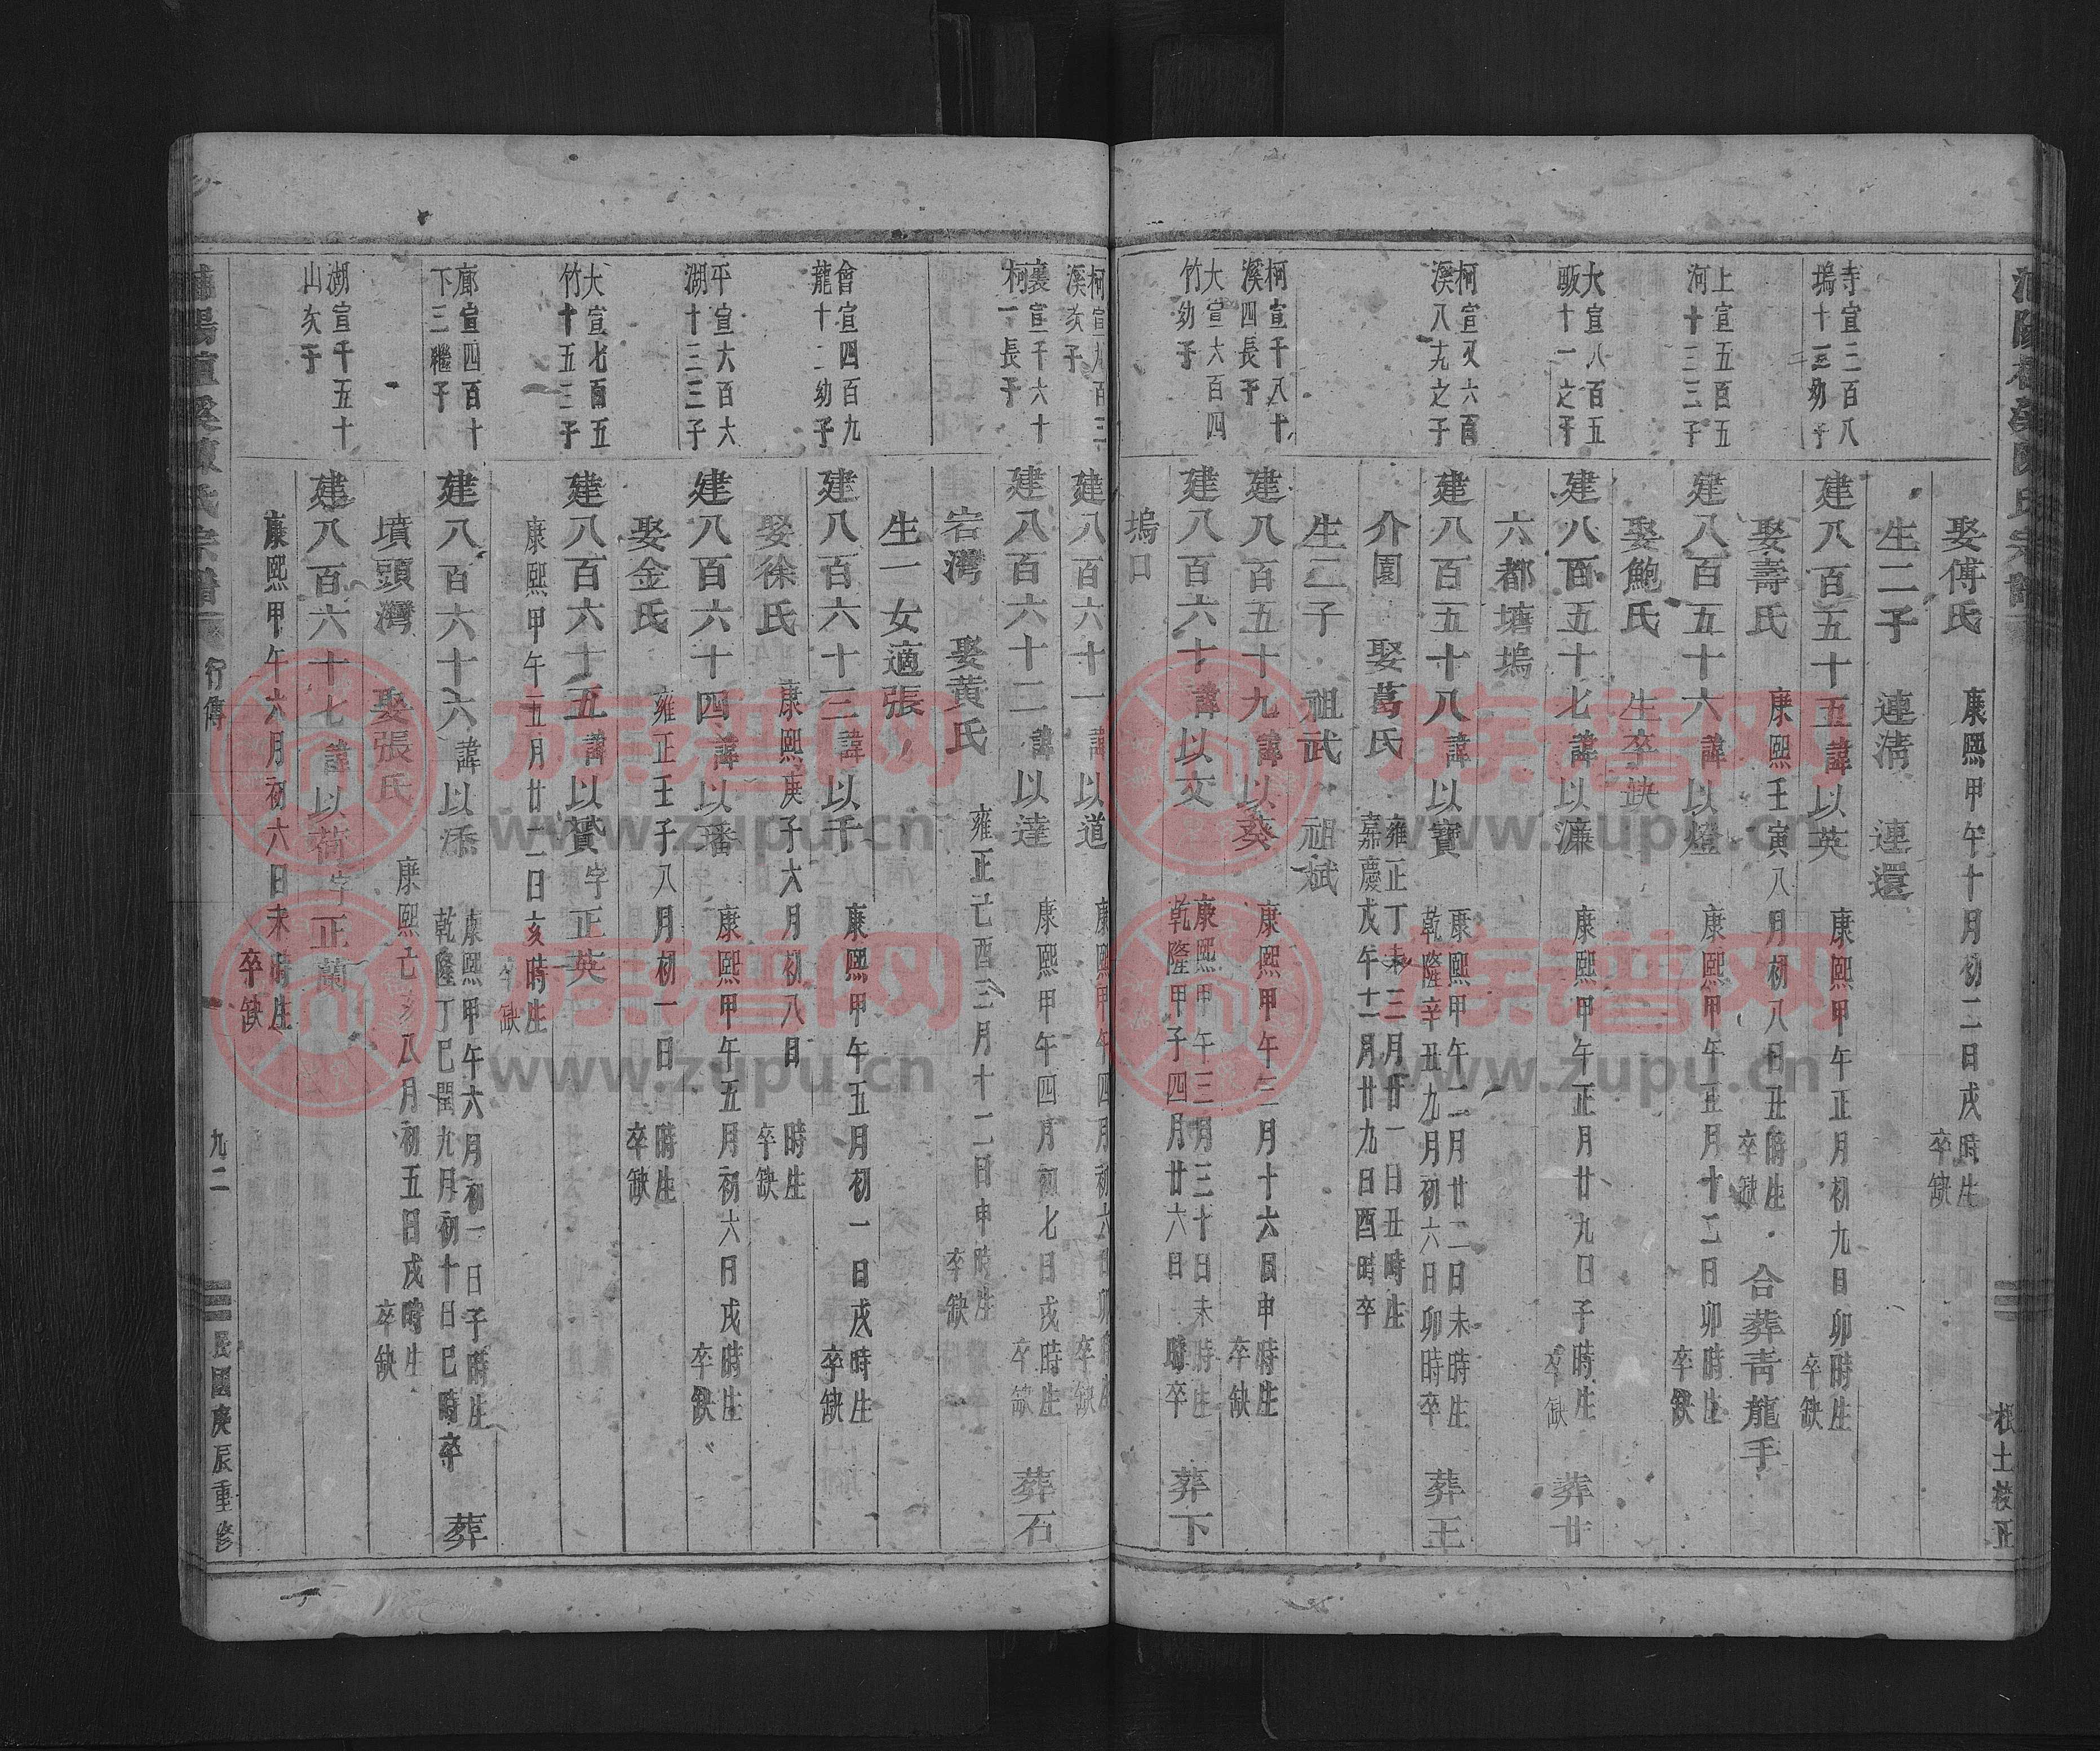 娶傅氏 康熙甲午十月初二日戌時生 卒缺
生二子 連淸 連還
寺宣三百八
塢十三幼子
建八百五十五諱以英 康熙甲午正月初九日卯時生 卒缺
娶壽氏 康熙壬寅八月初八日丑時生 卒缺 合葬青龍手
上宣五百五
河十三三子
建八百五十六諱以燈 康熙甲午正月十二日卯時生 卒缺
娶鮑氏 生卒缺
大宣八百五
畈十一之子
建八百五十七諱以濂 康熙甲午正月廿九日子時生 卒缺 葬廿
六都塘塢
柯宣又六百
溪八九之子
建八百五十八諱以寶 康熙甲午二月廿二日未時生 乾隆辛丑九月初六日卯時卒 葬王
介園 娶葛氏 雍正丁未三月廿一日丑時生 嘉慶戊午十一月廿九日酉時卒
生二子 祖武 祖斌
柯宣千八十
溪四長子
建八百五十九諱以葵 康熙甲午三月十六日申時生 卒缺
大宣六百四
竹幼子
建八百六十諱以文 康熙甲午三月三十日未時生 乾隆甲子四月廿六日時卒 葬下
塢口
柯宣九百三
溪次子
建八百六十一諱以道 康熙甲午四月初六日卯時生 卒缺
裏宣千六十
柯一長子
建八百六十二諱以達 康熙甲午四月初七日戌時生 卒缺 葬石
宕灣 娶黃氏 雍正己酉三月十二日申時生 卒缺
生一女適張
會宣四百九
龍十二幼子
建八百六十三諱以千 康熙甲午五月初一日戌時生 卒缺
娶徐氏 康熙庚子六月初八日時生 卒缺
平宣六百六
湖十三三子
建八百六十四諱以璠 康熙甲午五月初六日戌時生 卒缺
娶金氏 雍正壬子八月初一日時生 卒缺
大宣七百五
竹十五三子
建八百六十五諱以贇字正英
康熙甲午五月廿二日亥時生 卒缺
廊宣四百十
下三繼子
建八百六十六諱以添 康熙甲午六月初一日子時生 乾隆丁巳閏九月初十日巳時卒 葬
墳頭灣 娶張氏 康熙己亥八月初五日戌時生 卒缺
湖宣千五十
山次子
建八百六十七諱以荷字正蘭
康熙甲午六月初六日未時生 卒缺
行傳
九二
民國庚辰重修